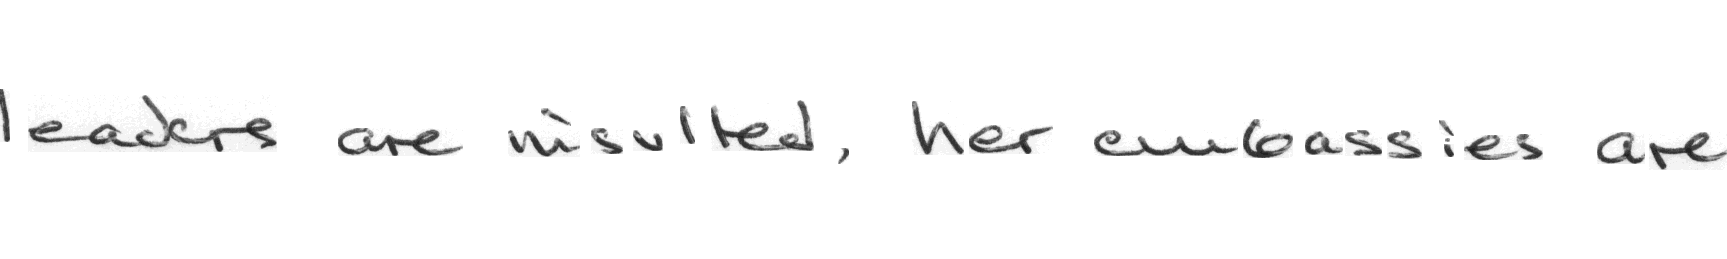 leaders are insulted, her embassies are